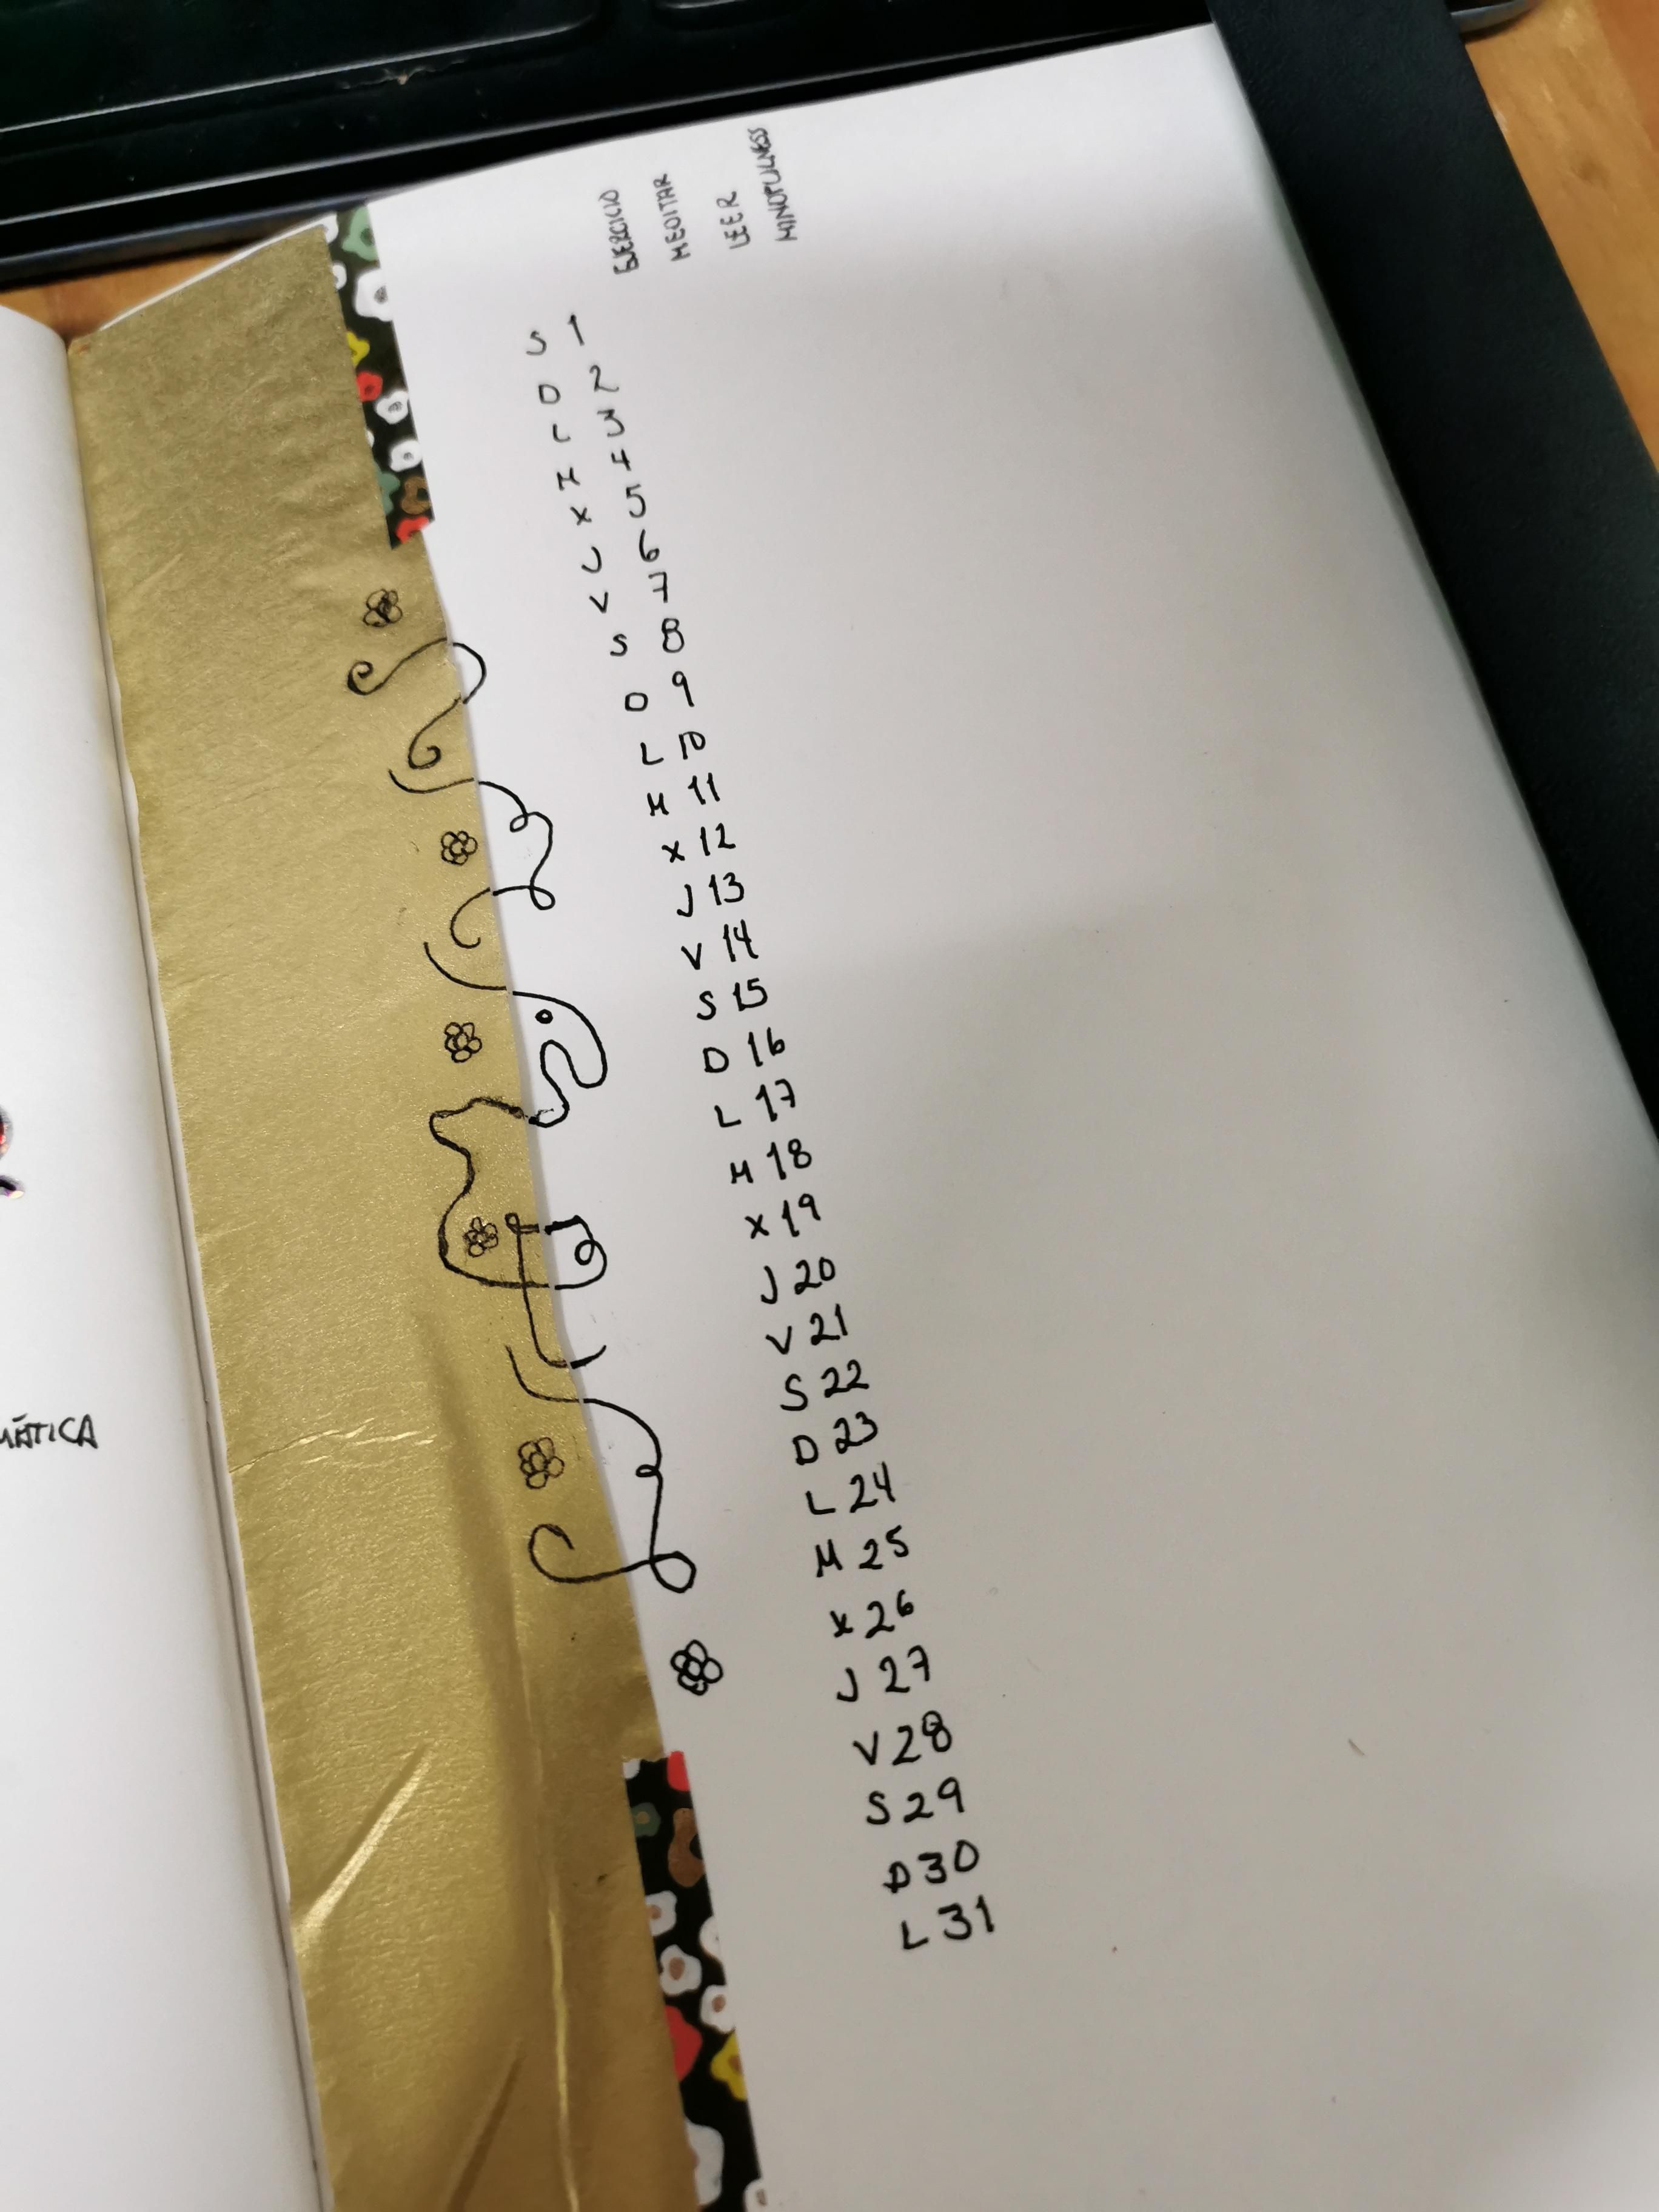 EJERCICIO
MEDITAR
LEER
MINDFULNESS
S 1
D 2
L 3
M 4
X 5
J 6
V 7
S 8
D 9
L 10
M 11
X 12
J 13
V 14
S 15
D 16
L 17
M 18
X 19
J 20
V 21
S 22
D 23
L 24
M 25
X 26
J 27
V 28
S 29
D 30
L 31